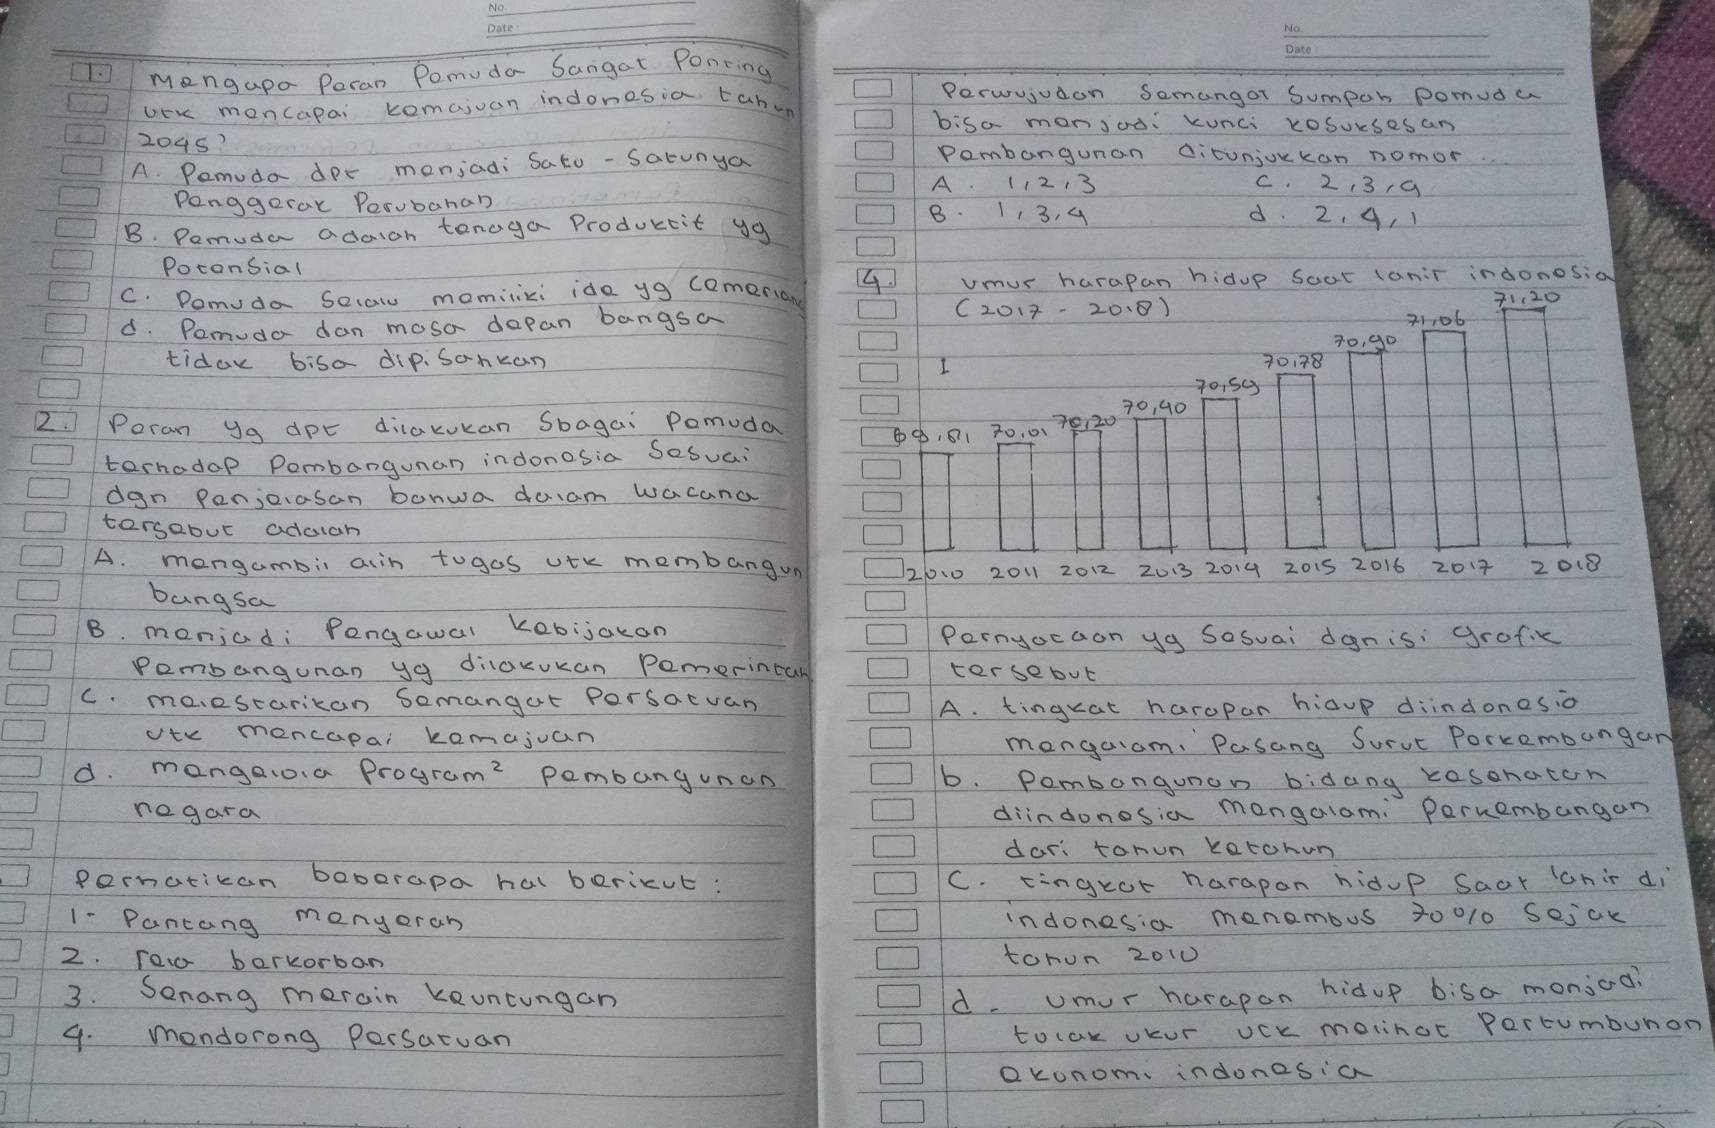 No.
Date
1. Mengapa Peran Pemuda Sangat Penting
utk mencapai kemajuan indonesia tahun
2045?
A. Pemuda dpt menjadi Satu-Satunya
Penggerak Perubahan
B. Pemuda adalah tenaga Produktif yg
Potensial
C. Pemuda Selalu memiliki ide yg cemerlang
d. Pemuda dan masa depan bangsa
tidak bisa dipisahkan
2. Peran yg dpt dilakukan Sbagai Pemuda
terhadap Pembangunan indonesia Sesuai
dgn Penjelasan bahwa dalam wacana
tersebut adalah
A. mengambil alih tugas utk membangun
bangsa
B. menjadi Pengawal kebijakan
Pembangunan yg dilakukan Pemerintah
C. melestarikan Semangat Persatuan
utk mencapai kemajuan
d. mengelola Program² pembangunan
negara
Perhatikan beberapa hal berikut:
1. Pantang menyerah
2. rela berkorban
3. Senang meraih keuntungan
4. Mendorong Persatuan
No.
Date
Perwujudan Semangat Sumpah pemuda
bisa menjadi kunci kesuksesan
Pembangunan ditunjukkan nomor...
A. 1,2,3 C. 2,3,4
B. 1,3,4 d. 2,4,1
4. umur harapan hidup saat lahir indonesia
(2017-2018)
71,20
71,06
70,90
I 70,78
70,59
70,40
70,20
70,01
69,81
2010 2011 2012 2013 2014 2015 2016 2017 2018
Pernyataan yg Sesuai dgn isi grafik
tersebut
A. tingkat harapan hidup diindonesia
mengalami Pasang Surut Perkembangan
b. Pembangunan bidang kesehatan
diindonesia mengalami Perkembangan
dari tahun ketahun
C. tingkat harapan hidup Saat lahir di
indonesia menembus 70% Sejak
tahun 2010
d. umur harapan hidup bisa menjadi
tolak ukur utk melihat Pertumbuhan
ekonomi indonesia